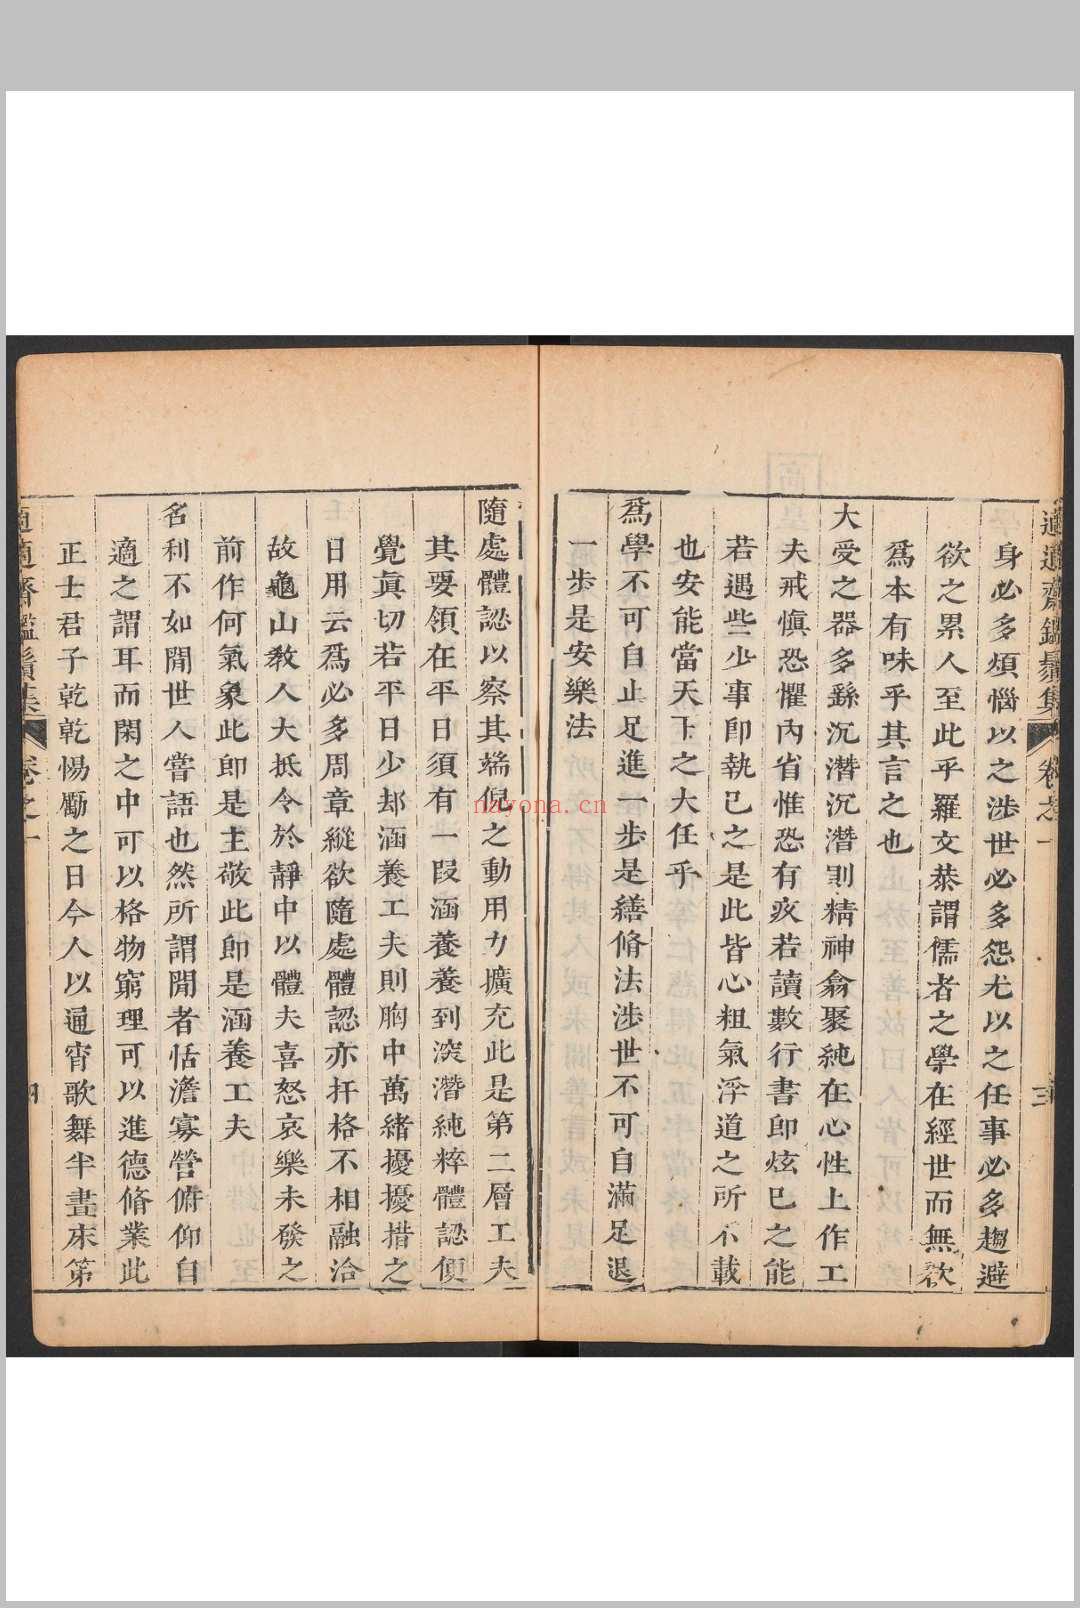 適適齋鑑鬚集 卷之一 三
身必多煩惱以之涉世必多怨尤以之任事必多趨避
欲之累人至此乎羅文恭謂儒者之學在經世而無欲
爲本有味乎其言之也
大受之器多繇沉潛沉潛則精神翕聚純在心性上作工
夫戒慎恐懼內省惟恐有疚若讀數行書卽炫已之能
若遇些少事卽執已之是此皆心粗氣浮道之所不載
也安能當天下之大任乎
爲學不可自止足進一步是繕脩法涉世不可自滿足退
一步是安樂法
隨處體認以察其端倪之動用力擴充此是第二層工夫
其要領在平日須有一段涵養養到淡潛純粹體認便
覺眞切若平日少却涵養工夫則胸中萬緒擾擾措之
日用云爲必多周章縱欲隨處體認亦扞格不相融洽
故龜山敎人大抵令於靜中以體夫喜怒哀樂未發之
前作何氣象此卽是主敬此卽是涵養工夫
名利不如閒世人嘗語也然所謂閒者恬澹寡營俯仰自
適之謂耳而閑之中可以格物窮理可以進德脩業此
正士君子乾乾惕勵之日今人以通宵歌舞半晝床第
適適齋鑑鬚集 卷之一 四
nayona.cn